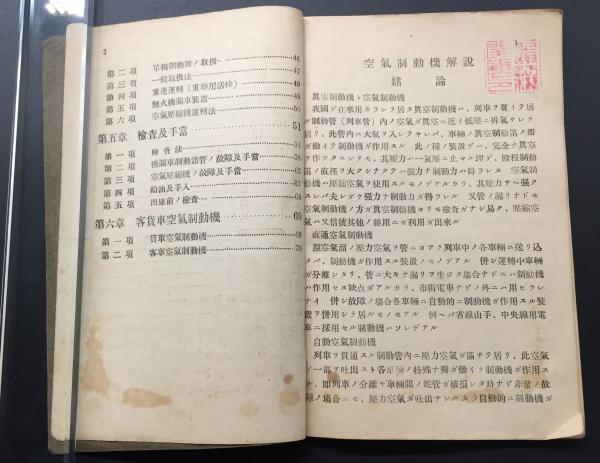 2
第二項 單獨制動閥ノ取扱 46
第三項 一般取扱法 47
第四項 重連運轉(重聯用活栓) 49
第五項 無火機關車裝置 49
第六項 空氣壓縮機運轉法 50
第五章 檢査及手當 51
第一項 檢査法 51
第二項 機關車制動裝置ノ故障及手當
第三項 空氣壓縮機ノ故障及手當
第四項 給油及手入
第五項 出庫前ノ檢査 68
第六章 客貨車空氣制動機 69
第一項 貨車空氣制動機 69
第二項 客車空氣制動機 78
空氣制動機解說
緖論
眞空制動機ト空氣制動機
我國デ在來用カラレテ居タ眞空制動機ハ、列車ヲ貫イテ居
ル制動管(列車管)內ノ空氣ガ眞空ニ近イ低壓ニ排氣サレテ
居リ、此管內ニ大氣ヲ入レテヤレバ、車輛ノ眞空制動筒ノ瓣
ガ働イテ制動機ガ作用スル 此ノ種ノ裝置デハ、完全ナ眞空
ヲ作ツタニシテモ、其壓力ハ一氣壓ニ止マル理デ、餘程制動
筒ノ直徑ヲ大クシナクテハ强力ナ制動力ハ得ラレヌ 空氣制
動機ハ壓縮空氣ヲ使用スルモノデアルカラ、其壓力サヘ强ク
スレバ夫レダケ强力ナ制動力ガ得ラレル 又管ノ漏リナドモ
空氣制動機ノ方ガ眞空制動機ヨリモ檢査ガナシ易ク、壓縮空
氣ハ又信號其他ノ雜用ニモ利用ガ出來ル
直通空氣制動機
原空氣溜ノ壓力空氣ヲ管ニヨツテ列車中ノ各車輛ニ送リ込
メバ、制動機ガ作用スル裝置ノモノデアル 併シ運轉中車輛
ガ分離シタリ、管ニ大キナ漏リヲ生ジタ場合ナドニハ制動機
ハ作用セヌ缺点ガアルカラ、市街電車ナドノ外ニハ用ヒラレ
ナイ 併シ故障ノ場合各車輛ニ自動的ニ制動機ガ作用スル裝
置ヲ併用シテ居ルモノモアル 例ヘバ省線山手、中央線用電
車ニ採用セル制動機ハソレデアル
自動空氣制動機
列車ヲ貫通スル制動管內ニ壓力空氣ガ滿チテ居リ、此空氣
ノ一部ヲ吐出スト各車輛ノ特殊ナ瓣ガ働イテ制動機ガ作用ス
ル、卽列車ノ分離ヤ車輛間ノ蛇管ガ破損シタ時ナド非常ノ故
障ノ場合ニモ、壓力空氣ガ吐出サレルカラ自動的ニ制動機ガ